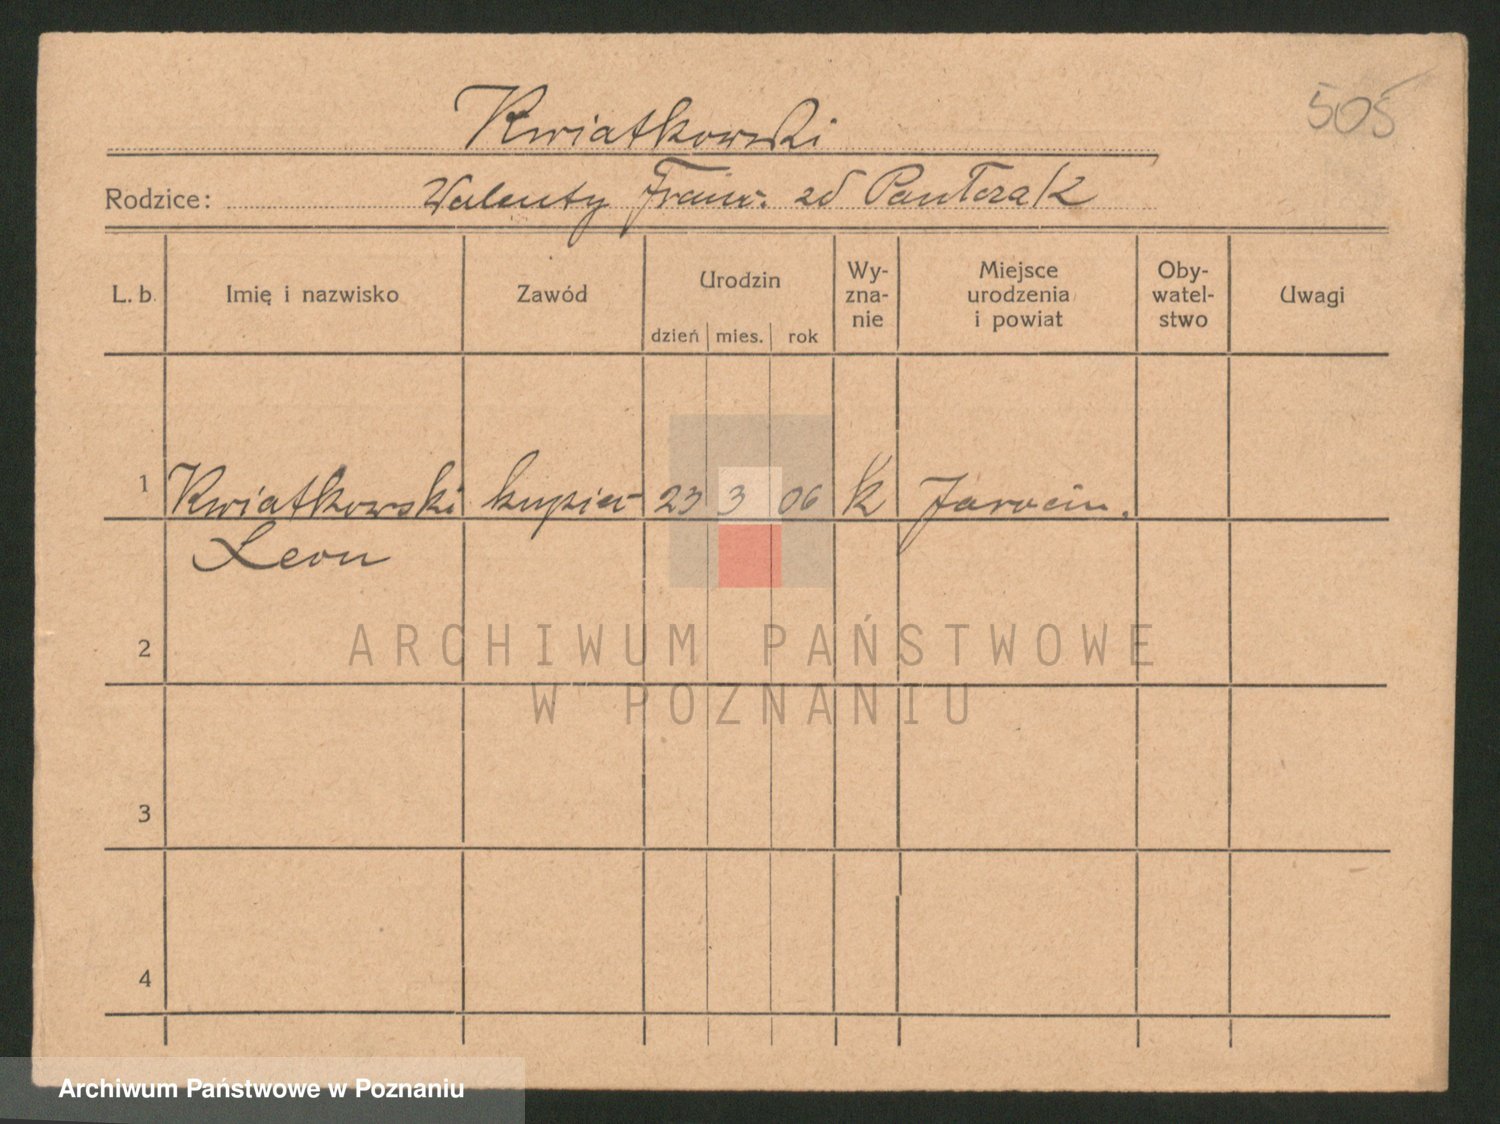 505
Kwiatkowski
Rodzice: Walenty Franc. zd
L. b. Imię i nazwisko Zawód Urodzin dzień mies. rok Wy-zna-nie Miejsce urodzenia i powiat Oby-watel-stwo Uwagi
1 Kwiatkowski kupiec 23 3 06 k Jarocin.
Leon
2
3
4
ARCHIWUM PAŃSTWOWE
W POZNANIU
Archiwum Państwowe w Poznaniu